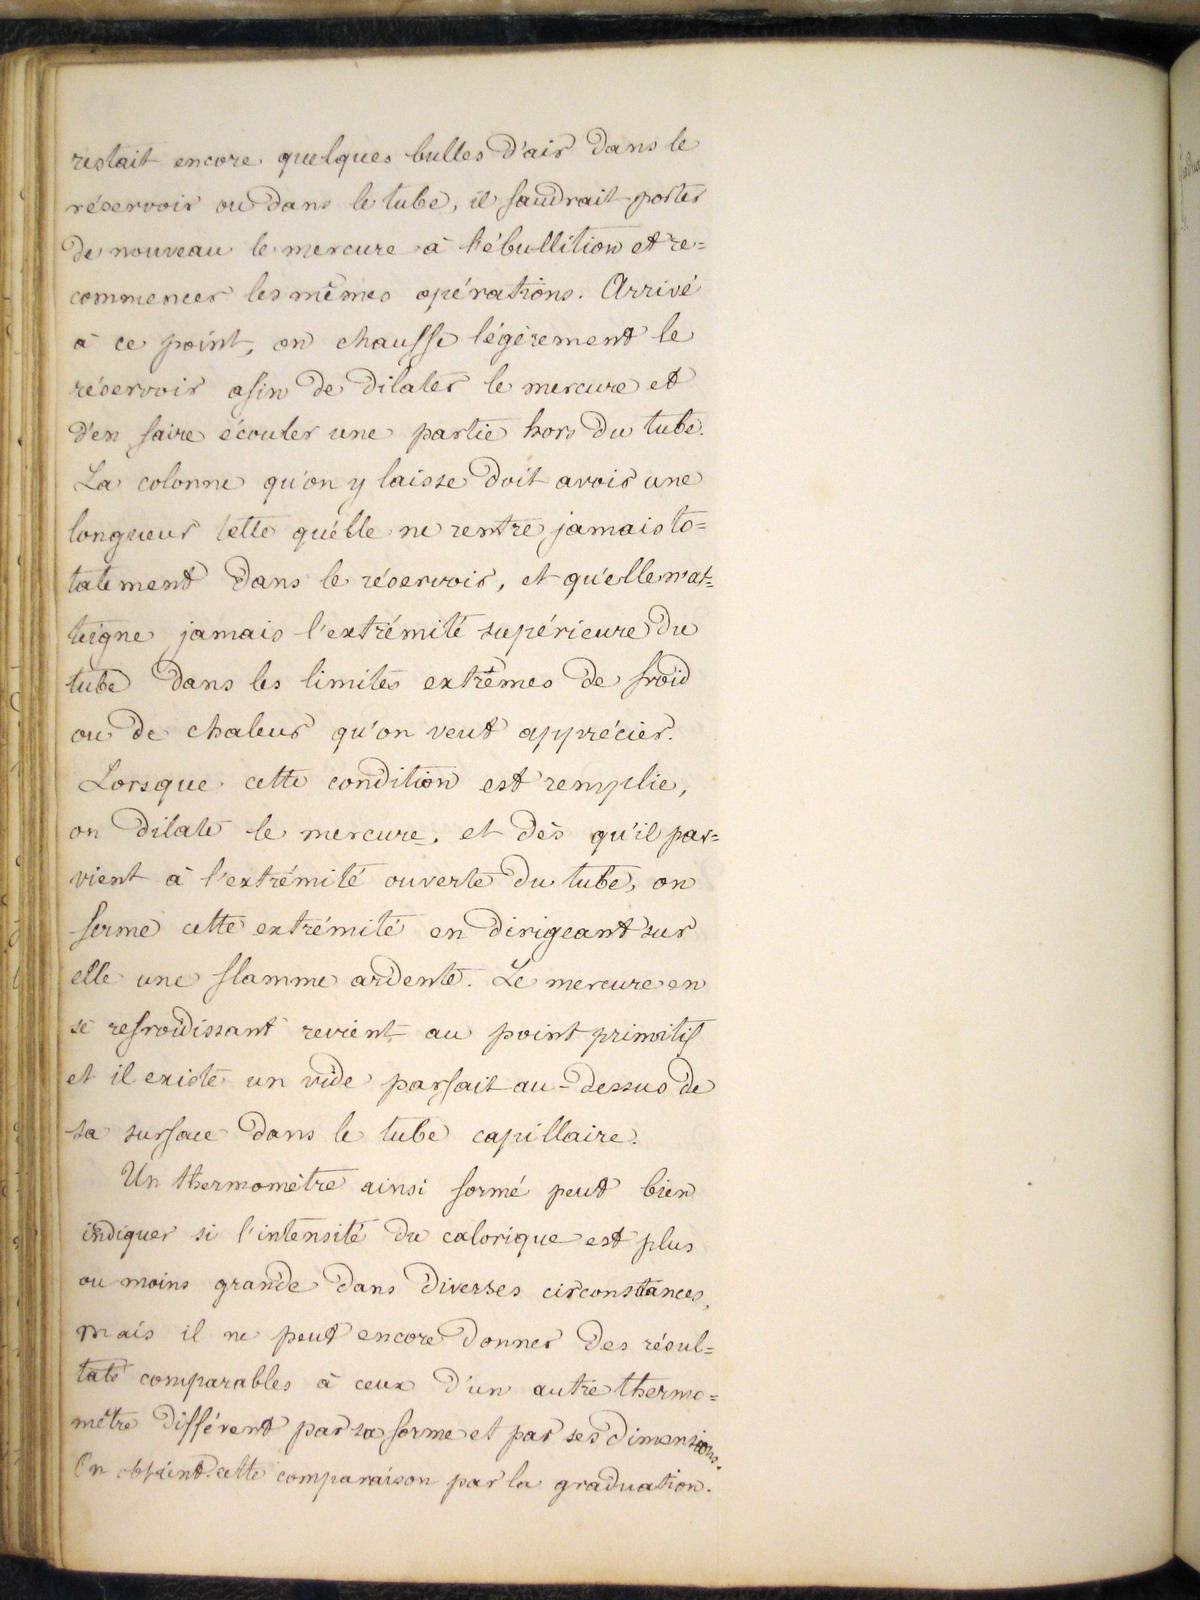 restait encore quelques bulles d'air dans le
réservoir ou dans le tube, il faudrait porter
de nouveau le mercure à l'ébullition et re=
commencer les mêmes opérations. Arrivé
à ce point, on chauffe légèrement le
réservoir afin de dilater le mercure et
d'en faire écouler une partie hors du tube.
La colonne qu'on y laisse doit avoir une
longueur telle qu'elle ne rentre jamais to=
talement dans le réservoir, et qu'elle n'at=
teigne jamais l'extrémité supérieure du
tube dans les limites extrêmes de froid
ou de chaleur qu'on veut apprécier.
Lorsque cette condition est remplie,
on dilate le mercure, et dès qu'il par=
vient à l'extrémité ouverte du tube, on
ferme cette extrémité en dirigeant sur
elle une flamme ardente. Le mercure en
se refroidissant revient au point primitif
et il existe un vide parfait au-dessus de
sa surface dans le tube capillaire.
Un thermomètre ainsi formé peut bien
indiquer si l'intensité du calorique est plus
ou moins grande dans diverses circonstances,
mais il ne peut encore donner des résul=
tats comparables à ceux d'un autre thermo=
mètre différent par sa forme et par ses dimensions.
On obtient cette comparaison par la graduation.